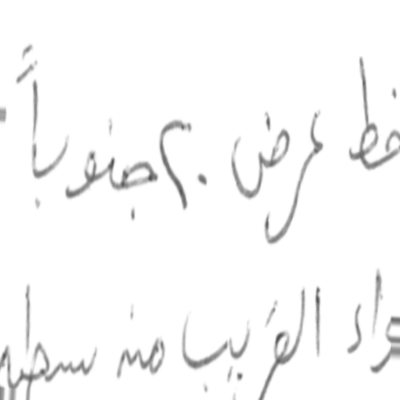 خط عرض ٢٠ جنوباً
القريب من سطح